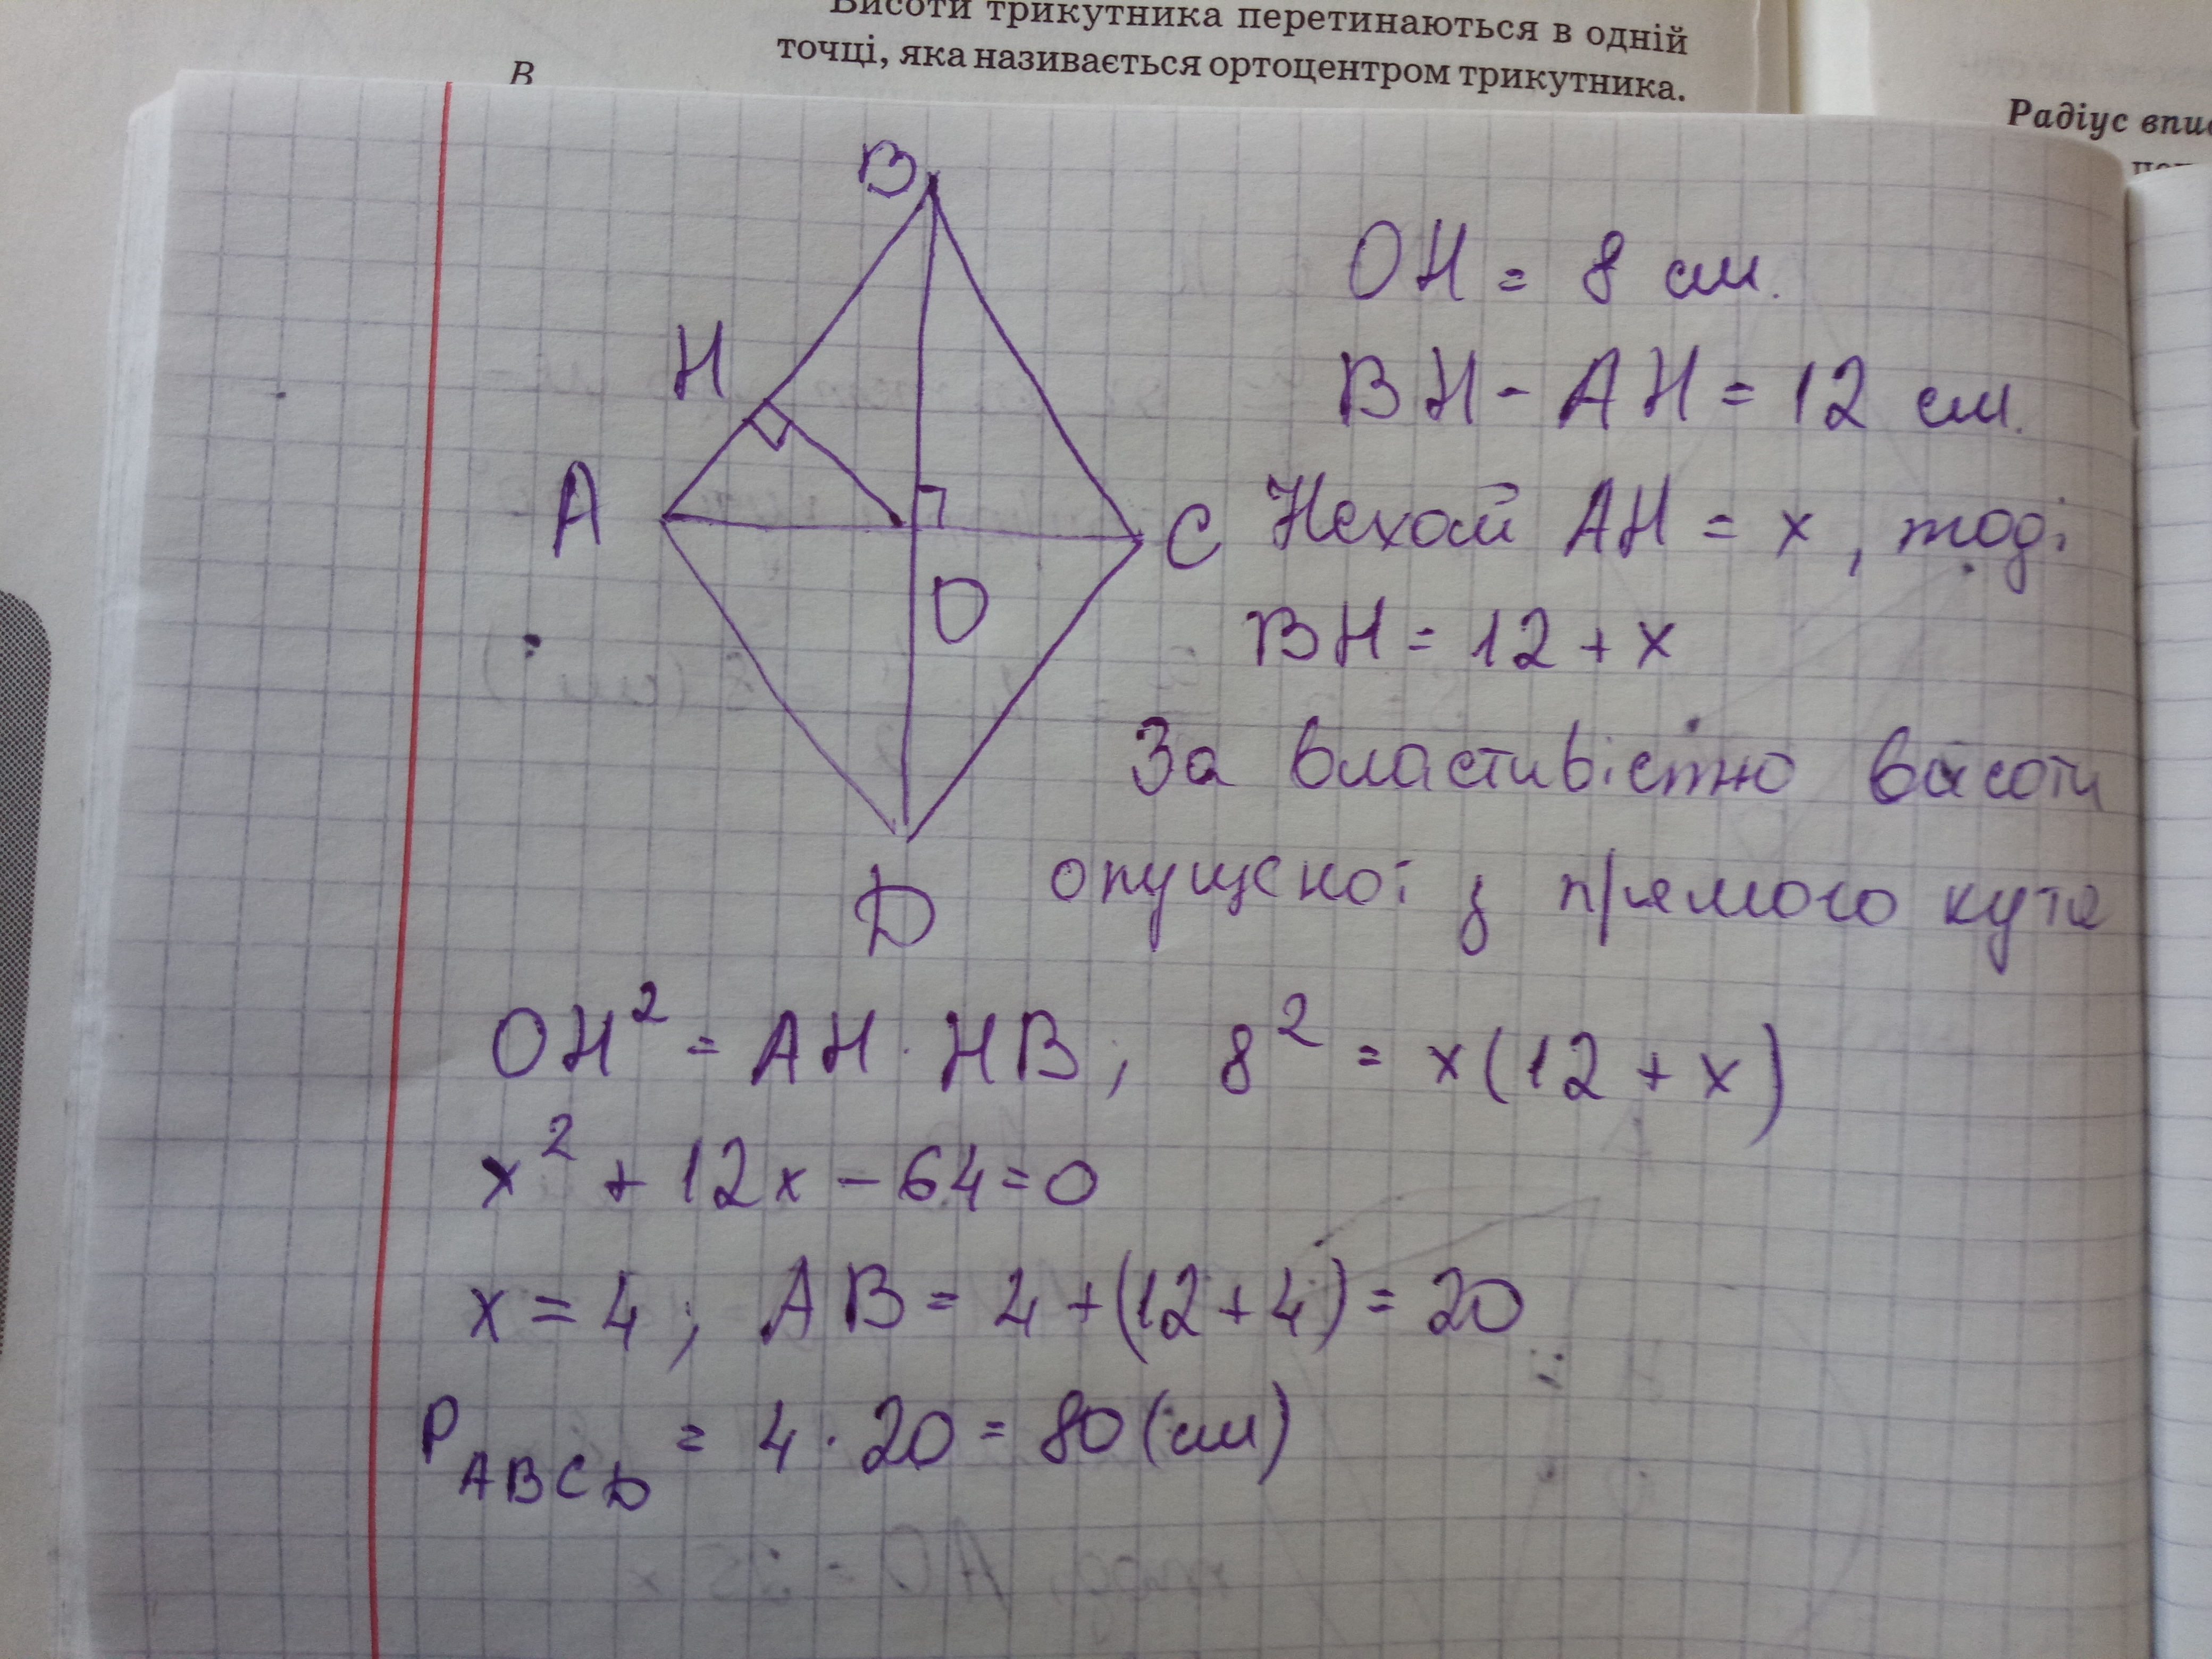 Висоти трикутника перетинаються в одній
точці, яка називається ортоцентром трикутника.
B
Радіус впис
B
H
A
C
O
D
OH = 8 см.
BH - AH = 12 см.
Нехай AH = x, тоді
BH = 12 + x
За властивістю висоти
опущеної з прямого кута
OH² = AH · HB; 8² = x(12 + x)
x² + 12x - 64 = 0
x = 4; AB = 4 + (12 + 4) = 20
P ABCD = 4 · 20 = 80 (см)